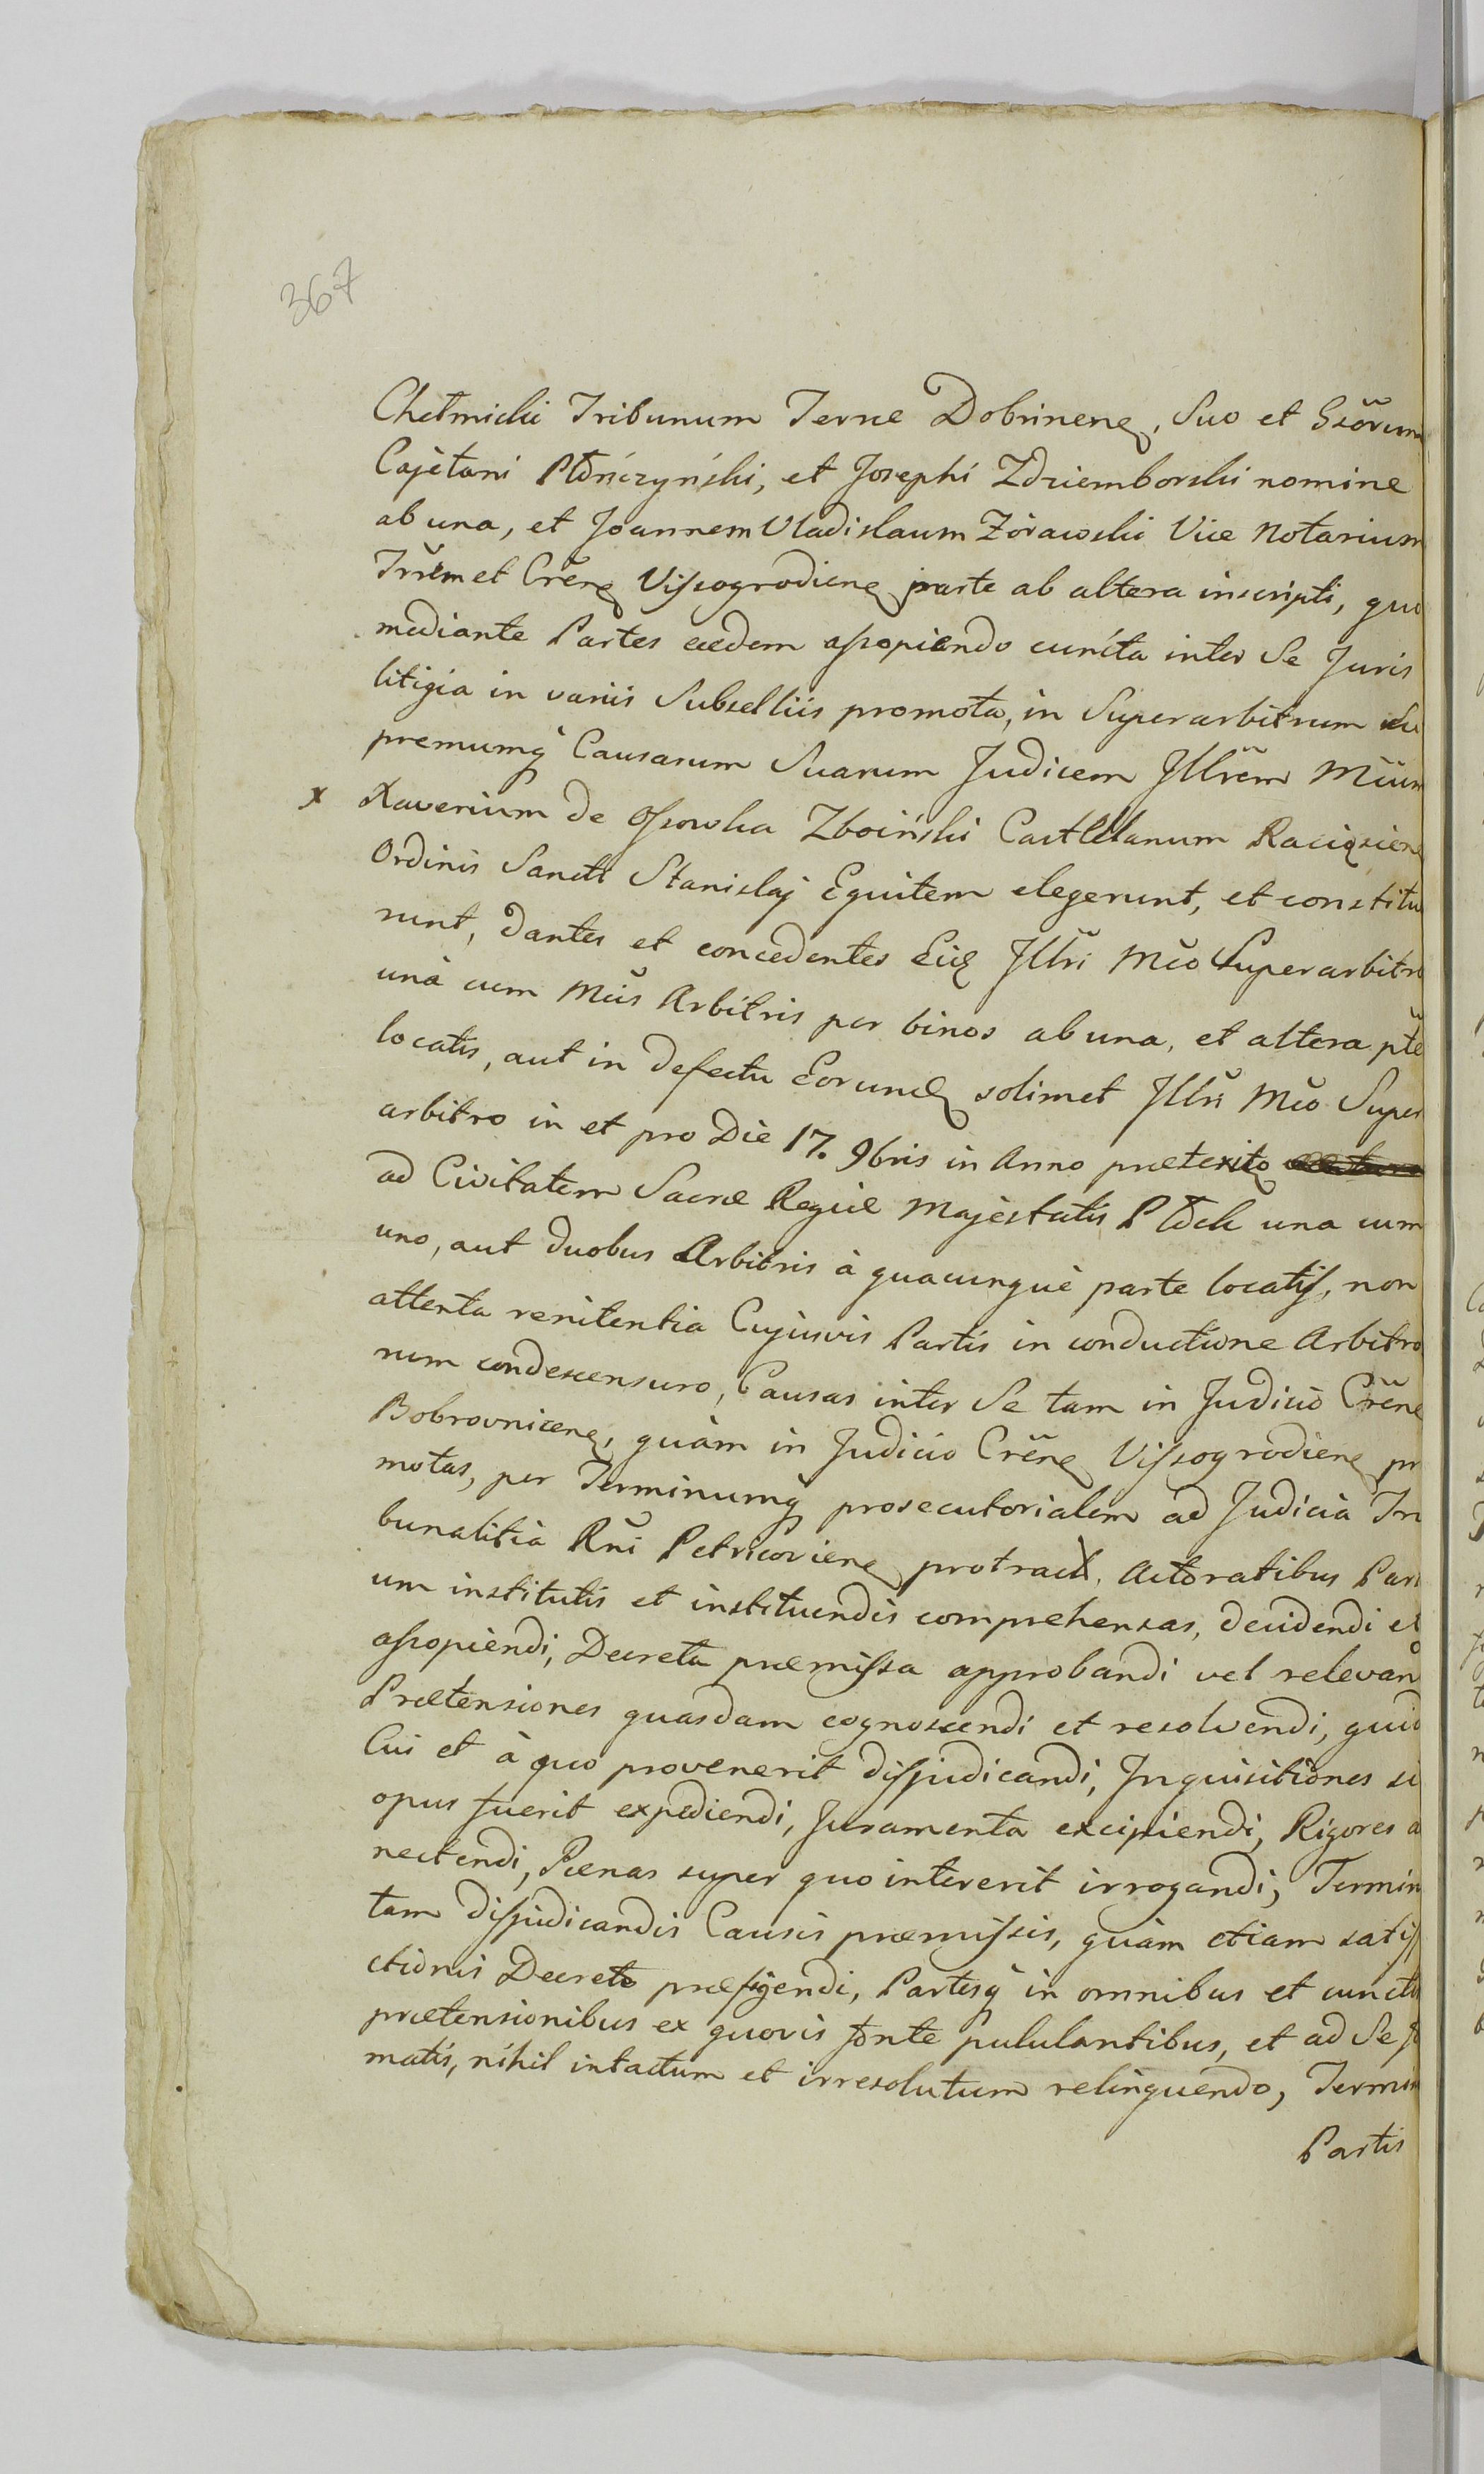 367
Chełmicki Tribunum Terræ Dobrinenę, Suo et Gsõrum
Cajètani Płończyński, et Josephi Zdziemborski nomine
ab una, et Joannem Vladislaum Zórawski Vice Notarium
Trrĕm et Crĕnę Viſsogrodienę parte ab altera inscripti, quo
mediante Partes eædem aſsopiendo cuncta inter Se Juris
litigia in variis Subselliis promota, in Superarbitrum Su
premumq̀ Causarum Suarum Judicem Jllrĕm Mŭum
x Xaverium de Oſsowka Zboiński Castellanum Raciązienę
Ordinis Sancti Stanislaj Equitem elegerunt, et constitu
runt, dantes et concedentes Eidę Jllrĭ Mŏo Superarbitro
unà cum Mĭis Arbitris per binos ab una, et altera ptĕ
locatis, aut in defectu Eorundę solimet Jllrĭ Mĭo Super
arbitro in et pro Die 17. 9bris in Anno præterito
ad Civitatem Sacræ Regiæ Majèstatis Płock una cum
uno, aut duobus Arbitris à quacunquè parte locatiſ, non
attenta renitentia Cujusvis Partis in conductione Arbitro
rum condescensuro, Causas inter Se tam in Judiciò Crĕnę
Bobrovnicenę, quàm in Judicio Crĕnę Viſsogrodienę pr
motas, per Terminumq̀ prosecutorialem ad Judicià Tri
bunalitià Rnĭ Petricovienę protract, Actoratibus Parti
um institutis et instituendis comprehensas, decidendi et
aſsopièndi, Decreta præmiſsa approbandi vel relevan
Prætensiones quasdam cognoscendi et resolvendi, quid
Cui et à quo provenerit diſjudicandi, Jnquisitiònes si
opus fuerit expediendi, Juramenta excipiendi, Rigores a
nectendi, Pœnas super quo intererit irrogandi, Termin
tam diſjudicandis Causis præmiſsis, quàm etiam satiſf
ctionis Decreto præfigendi, Partesq̀ in omnibus et cunctis
prætensionibus ex quovis fonte pululantibus, et ad Se f
matis, nihil intactum et irresolutum relinquendo, Termin
Partis